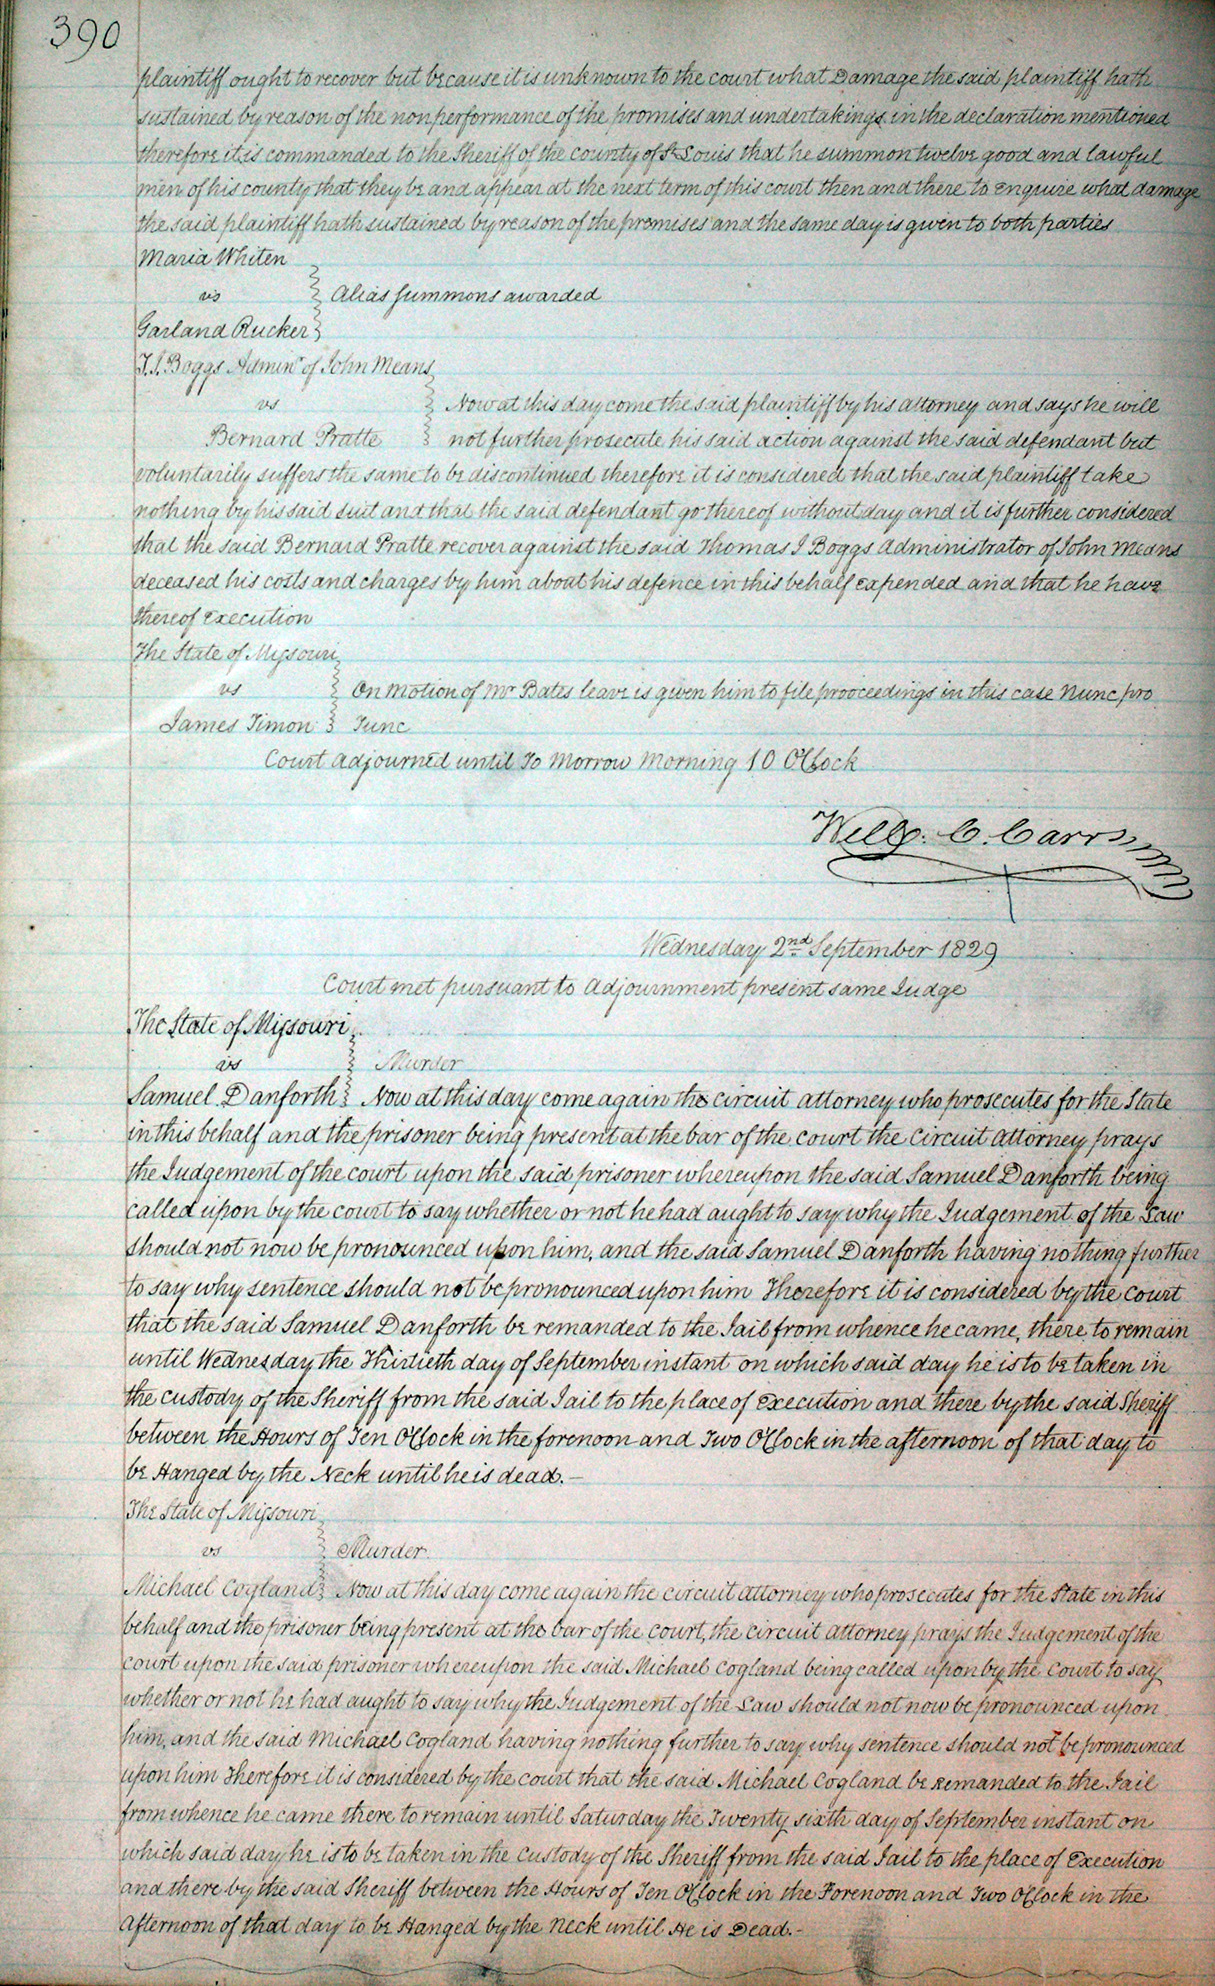 390
plaintiff ought to recover but because it is unknown to the court what Damage the said plaintiff hath
sustained by reason of the nonperformance of the promises and undertakings in the declaration mentioned
therefore it is commanded to the Sheriff of the county of St Louis that he summon twelve good and lawful
men of his county that they be and appear at the next term of this court then and there to Enquire what damage
the said plaintiff hath sustained by reason of the premises and the same day is given to both parties
Maria Whiten
vs
Alias Summons awarded
Garland Rucker
T. J. Boggs Adminr of John Means
vs
Now at this day come the said plaintiff by his attorney and says he will
Bernard Pratte
not further prosecute his said action against the said defendant but
voluntarily suffers the same to be discontinued therefore it is considered that the said plaintiff take
nothing by his said suit and that the said defendant go thereof without day and it is further considered
that the said Bernard Pratte recover against the said Thomas J Boggs Administrator of John Means
deceased his costs and charges by him about his defence in this behalf expended and that he have
thereof Execution
The State of Missouri
vs
On Motion of Mr Bates leave is given him to file prooceedings in this case Nunc pro
James Timon
Tunc
Court Adjourned until To Morrow Morning 10 OClock
Will. C. Carr
Wednesday 2nd September 1829
Court met pursuant to Adjournment present same Judge
The State of Missouri
vs
Murder
Samuel Danforth
Now at this day come again the circuit attorney who prosecutes for the State
in this behalf and the prisoner being present at the bar of the court the Circuit Attorney prays
the Judgement of the court upon the said prisoner whereupon the said Samuel Danforth being
called upon by the court to say whether or not he had aught to say why the Judgement of the Law
should not now be pronounced upon him, and the said Samuel Danforth having nothing further
to say why sentence should not be pronounced upon him Therefore it is considered by the court
that the said Samuel Danforth be remanded to the Jail from whence he came, there to remain
until Wednesday the Thirtieth day of September instant on which said day he is to be taken in
the custody of the Sheriff from the said Jail to the place of Execution and there by the said Sheriff
between the Hours of Ten OClock in the forenoon and Two OClock in the afternoon of that day to
be Hanged by the Neck until he is dead.—
The State of Missouri
vs
Murder
Michael Cogland
Now at this day come again the circuit attorney who prosecutes for the State in this
behalf and the prisoner being present at the bar of the court, the circuit attorney prays the Judgement of the
court upon the said prisoner whereupon the said Michael Cogland being called upon by the Court to say
whether or not he had aught to say why the Judgement of the Law should not now be pronounced upon
him, and the said Michael Cogland having nothing further to say why sentence should not be pronounced
upon him Therefore it is considered by the court that the said Michael Cogland be Remanded to the Jail
from whence he came there to remain until Saturday the Twenty sixth day of September instant on
which said day he is to be taken in the custody of the Sheriff from the said Jail to the place of Execution
and there by the said Sheriff between the Hours of Ten OClock in the Forenoon and Two OClock in the
Afternoon of that day to be Hanged by the Neck until He is Dead.-